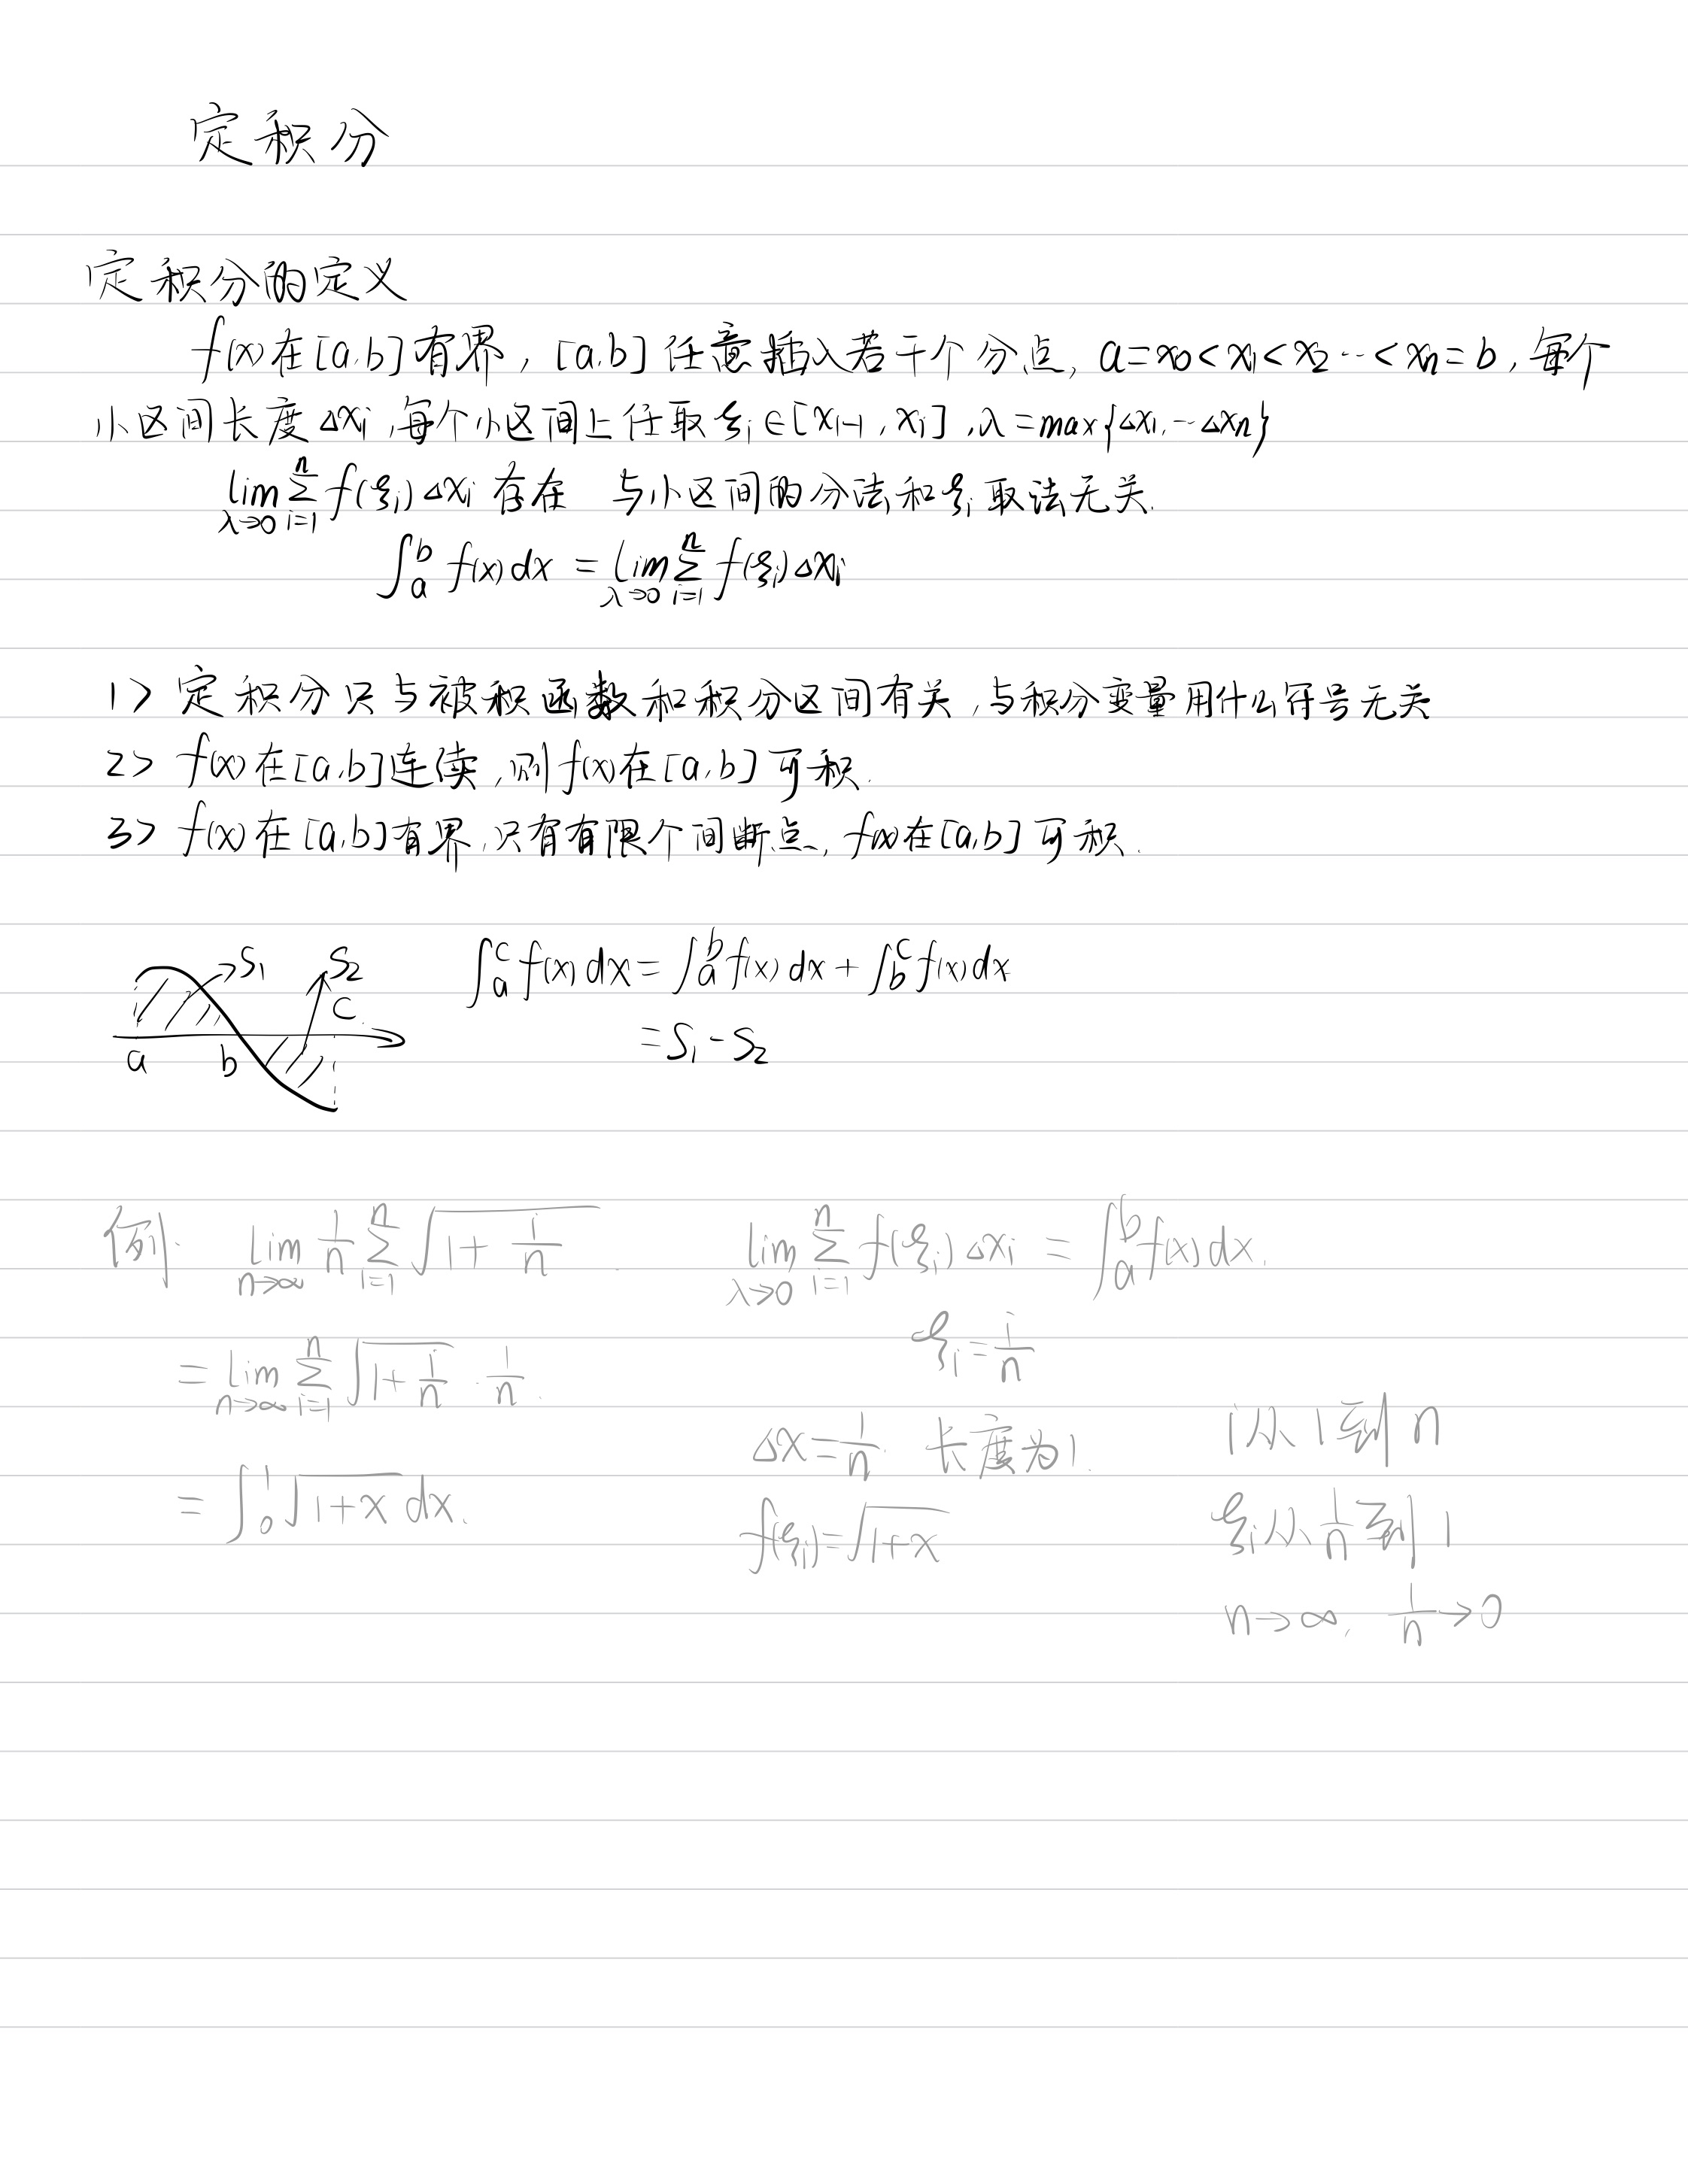 定积分
定积分的定义
f(x)在[a,b]有界，[a,b]任意插入若干个分点，a=x₀<x₁<x₂…<xₙ=b，每个
小区间长度Δxᵢ，每个小区间上任取ξᵢ∈[xᵢ₋₁，xᵢ]，λ=max{Δx₁,…Δxₙ}
lim_{λ→0} Σ_{i=1}^{n} f(ξᵢ)Δxᵢ 存在 与小区间的分法和ξᵢ取法无关.
∫_a^b f(x)dx = lim_{λ→0} Σ_{i=1}^{n} f(ξᵢ)Δxᵢ
1> 定积分只与被积函数和积分区间有关，与积分变量用什么符号无关
2> f(x)在[a,b]连续，则f(x)在[a,b]可积.
3> f(x)在[a,b]有界，只有有限个间断点，f(x)在[a,b]可积.
S₁ S₂ ∫_a^c f(x)dx = ∫_a^b f(x)dx + ∫_b^c f(x)dx
c
a b = S₁ - S₂
例. lim_{n→∞} 1/n Σ_{i=1}^{n} √(1+i/n). lim_{λ→0} Σ_{i=1}^{n} f(ξᵢ)Δxᵢ = ∫_a^b f(x)dx.
ξᵢ = i/n
= lim_{n→∞} Σ_{i=1}^{n} √(1+i/n) · 1/n.
Δx = 1/n. 长度为1. i从1到n
= ∫_0^1 √(1+x) dx. f(ξᵢ) = √(1+x) ξᵢ从1/n到1
n→∞, 1/n→0